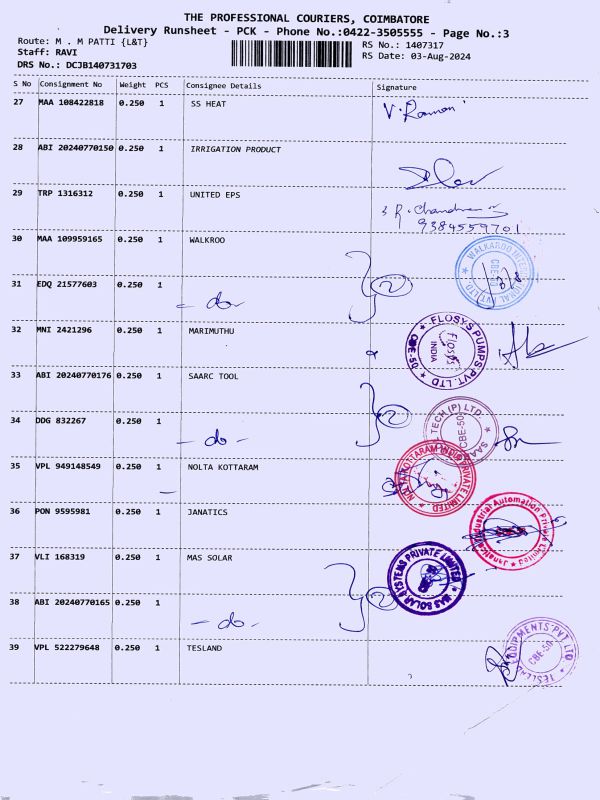 THE PROFESSIONAL COURIERS, COIMBATORE
Delivery Runsheet - PCK - Phone No.:0422-3505555 - Page No.:3
Route: M . M PATTI {L&T}
RS No.: 1407317
Staff: RAVI
RS Date: 03-Aug-2024
DRS No.: DCJB140731703
S No Consignment No Weight PCS Consignee Details Signature
27 MAA 108422818 0.250 1 SS HEAT V. Raman
28 ABI 20240770150 0.250 1 IRRIGATION PRODUCT
29 TRP 1316312 0.250 1 UNITED EPS R. Chandran
9384559701
30 MAA 109959165 0.250 1 WALKROO WALKAROO INTERNATIONAL PVT LTD CBE-50
31 EDQ 21577603 0.250 1 - do - 2
32 MNI 2421296 0.250 1 MARIMUTHU FLOSYS PUMPS PVT. LTD CBE-50 FLOSYS INDIA
33 ABI 20240770176 0.250 1 SAARC TOOL TECH (P) LTD. CBE-50
34 DDG 832267 0.250 1 - do - 2
35 VPL 949148549 0.250 1 NOLTA KOTTARAM KOTTARAM INDIA PRIVATE LIMITED
36 PON 9595981 0.250 1 JANATICS Janatics Industrial Automation Private Limited
37 VLI 168319 0.250 1 MAS SOLAR MAS SOLAR SYSTEMS PRIVATE LIMITED
38 ABI 20240770165 0.250 1 - do - 2
39 VPL 522279648 0.250 1 TESLAND TESLAND EQUIPMENTS PVT LTD CBE-50